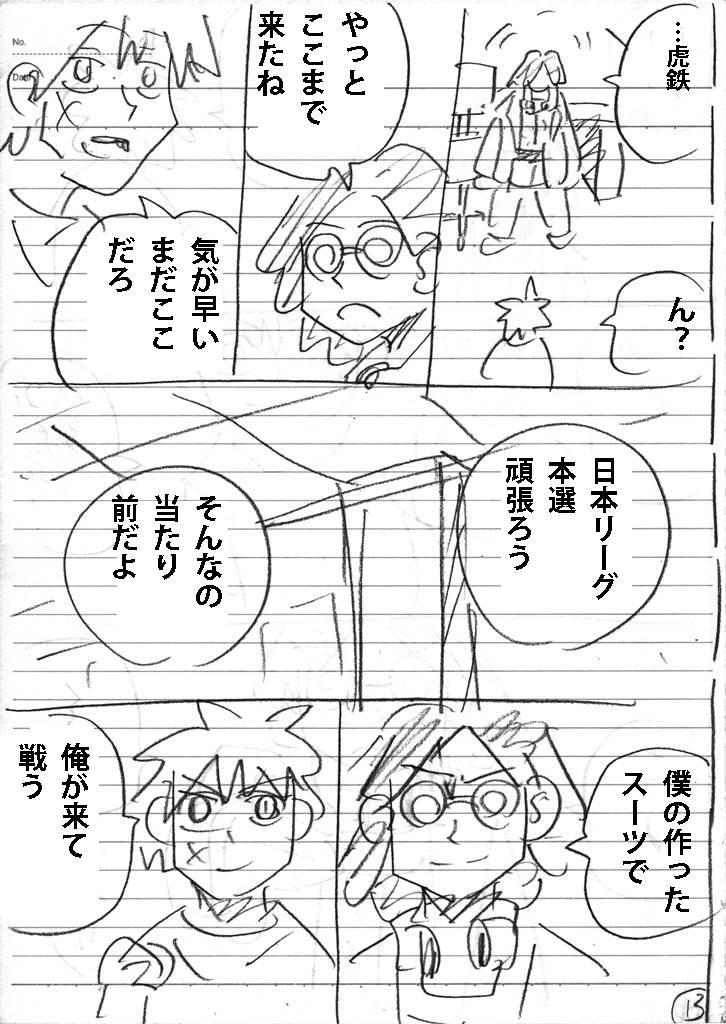 …虎鉄
ん?
やっと
ここまで
来たね
気が早い
まだここ
だろ
日本リーグ
本選
頑張ろう
そんなの
当たり
前だよ
僕の作った
スーツで
俺が来て
戦う
No.
Date
13